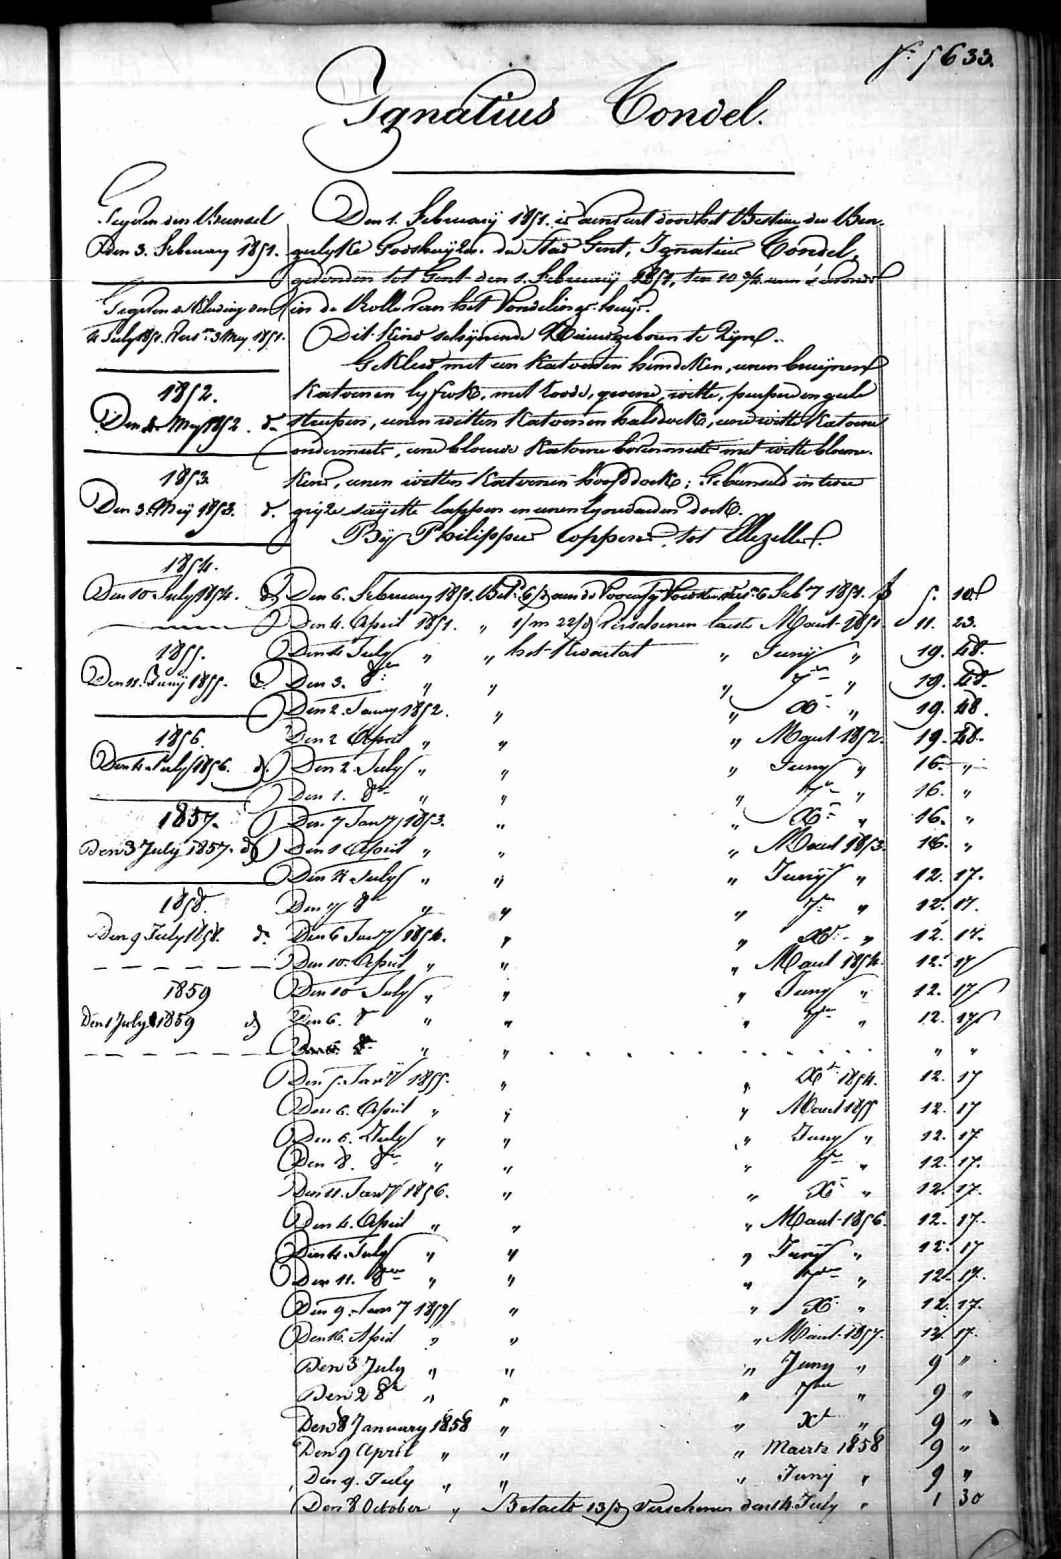 5633.
Ignatius Condel.
Gegeven den Bunsel
Den 3. February 1851.
4 July 1851. 3 Mey 1851.
1852.
Den 4. Mey 1852. do
1853
Den 3. Meij 1853. do
1854.
Den 10 July 1854. do
1855.
Den 11. Junij 1855. do
1856.
Den 4. July 1856. do
1857.
Den 3 July 1857. do
1858.
Den 9 July 1858. do
1859
Den 1 July 1859 do
Den 1. Februarij 1851. is door het Bestier der Bur-
gerlyke Godshuijzen der Stad Gent, Ignatius Condel,
gevonden tot Gent den 1. Februarij 1851, ten 10 3/4 uren
in de Rolle van het Vondelingshuijs.
Dit kind schijnende Nieuwgeboren te Zijn.
Gekleed met een Katoenen hemdeken, eenen bruijnen
Katoenen lyfrok, met roode, groene, witte, purpere en geele
streepen, eenen witten Katoenen halsdoek, eene witte Katoene
ondermuts, eene blouwe Katoene bovenmuts met witte bloem-
Kens, eenen witten Katoenen hoofddoek; Gebunseld in twee
grijze lappen en eenen doek.
Bij Philippus Coppens, tot Ellezelles.
Den 6. February 1851. Bet. aan de Voorm. 6 Feb 1851. 5. 10
Den 4. April 1851. " 1/m 22/ Verschenen laeste Maart 1851 11. 23.
Den 4 July " " het Kwartat " Junij " 19. 48.
Den 3. 8er " " " 7er " 19. 48.
Den 2. Janry 1852. " " Xr " 19. 48.
Den 2 April " " " Maart 1852. 19. 48.
Den 2. July " " " Juny " 16. "
Den 1. 8er " " " 7er " 16. "
Den 7 Janry 1853. " " Xr " 16. "
Den 1 April " " " Maart 1853. 16. "
Den 4 July " " " Junij " 12. 17.
Den 7 8er " " " 7er " 12. 17.
Den 6 Janry 1854. " " Xr " 12. 17.
Den 10. April " " " Maart 1854. 12. 17
Den 10 July " " " Juny " 12. 17
Den 6. 8 " " " 7er " 12. 17
" " " "
Den 5. Janry 1855. " " Xr 1854. 12. 17
Den 6. April " " " Maart 1855 12. 17
Den 6. July " " " Juny " 12. 17
Den 8. 8er " " " 7er " 12. 17.
Den 11. Janry 1856. " " Xr " 12. 17.
Den 4. April " " " Maart 1856. 12. 17.
Den 4. July " " " Junij " 12. 17
Den 11. 8er " " " 7er " 12. 17.
Den 9. Janry 1857 " " Xr " 12. 17.
Den 16. April " " " Maart 1857. 12. 17.
Den 3 July " " " Juny " 9 "
Den 2 8r " " " 7bre " 9 "
Den 8 January 1858 " " Xr " 9 "
Den 9 April " " " Maart 1858 9 "
Den 9. July " " " Junij " 9 "
Den 8 October " Betaelt 13/ Verschenen den 14 July " 1 30